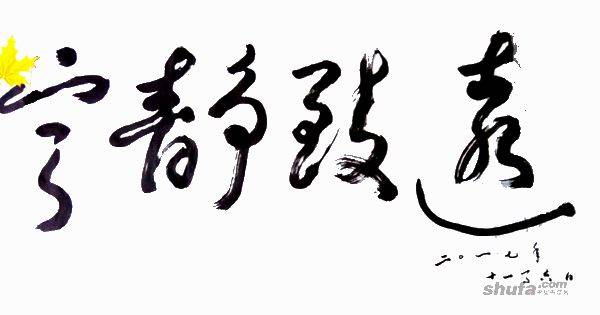 宁静致远
二〇一七年
十一月六日
shufa.com